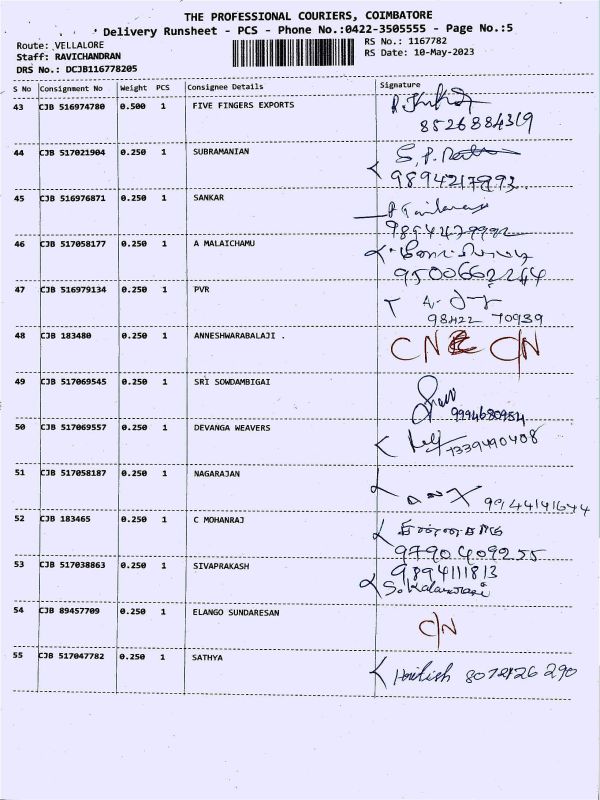 THE PROFESSIONAL COURIERS, COIMBATORE
Delivery Runsheet - PCS - Phone No.:0422-3505555 - Page No.:5
Route: VELLALORE
RS No.: 1167782
Staff: RAVICHANDRAN
RS Date: 10-May-2023
DRS No.: DCJB116778205
S No Consignment No Weight PCS Consignee Details Signature
43 CJB 516974780 0.500 1 FIVE FINGERS EXPORTS
8526884319
44 CJB 517021904 0.250 1 SUBRAMANIAN
9894217893
45 CJB 516976871 0.250 1 SANKAR
46 CJB 517058177 0.250 1 A MALAICHAMU
9500662244
47 CJB 516979134 0.250 1 PVR
98422 70939
48 CJB 183480 0.250 1 ANNESHWARABALAJI . CN C/N
49 CJB 517069545 0.250 1 SRI SOWDAMBIGAI
9994680954
50 CJB 517069557 0.250 1 DEVANGA WEAVERS
7339490408
51 CJB 517058187 0.250 1 NAGARAJAN
99144141644
52 CJB 183465 0.250 1 C MOHANRAJ
9790409255
53 CJB 517038863 0.250 1 SIVAPRAKASH 9894111813
54 CJB 89457709 0.250 1 ELANGO SUNDARESAN C/N
55 CJB 517047782 0.250 1 SATHYA